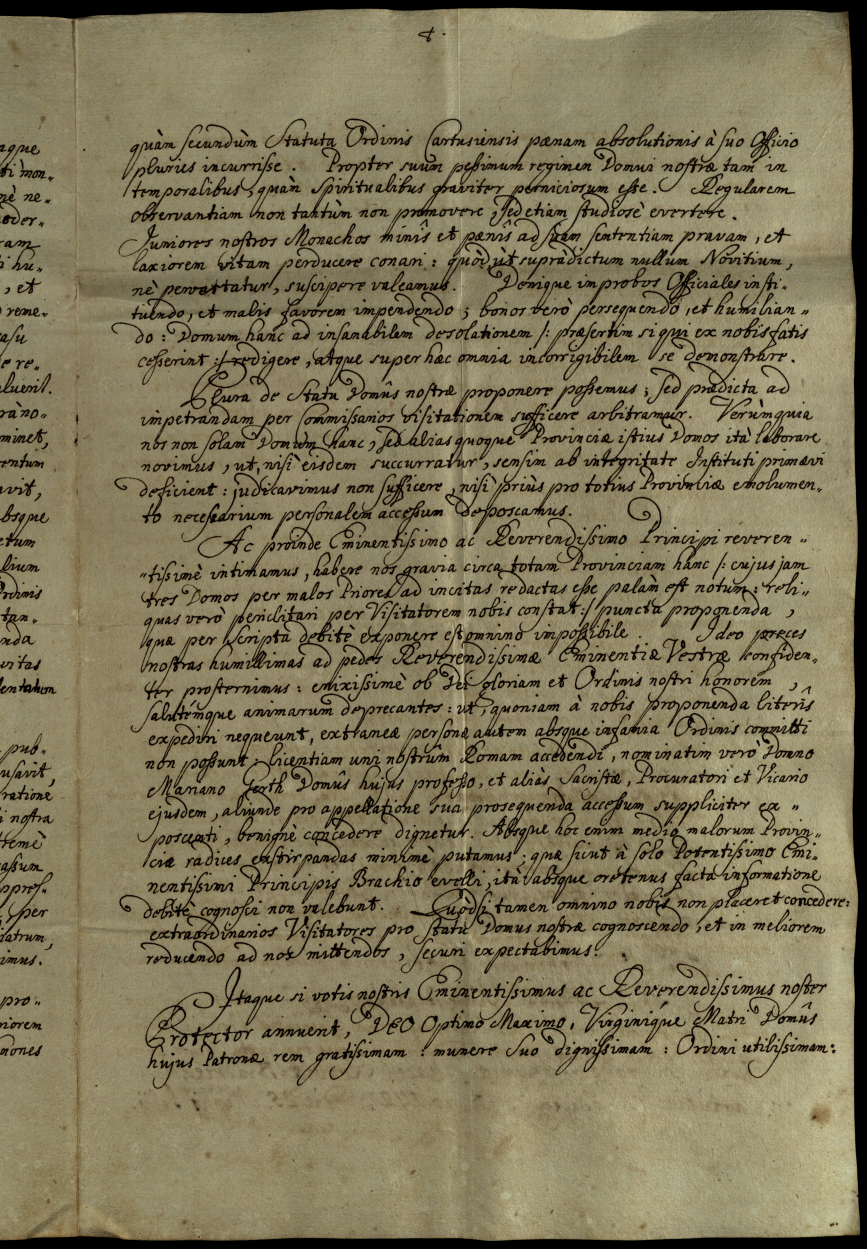 4.
quàm secundùm Statuta Ordinis Cartusiensis pœnam absolutionis à suo Officio
pluries incurrisse. Propter suum pessimum regimen Domui nostræ tam in
temporalibus, quàm spiritualibus graviter perniciosum esse. Regularem
observantiam non tantùm non promovere, sed etiam studiosè evertere.
Juniores nostros Monachos minîs et pœnîs ad suam sententiam pravam, et
laxiorem vitam perducere conari: quòd ut suprà dictum nullum Novitium,
nè pervertatur, suscipere valeamus. Denique improbos Officiales insti-
tuendo, et malis favorem impendendo; bonos verò persequendo, et humilian-
do: Domum hanc ad insanabilem desolationem /: præsertim si qui ex nobis fatis
cesserint :/ redigere, atque super hæc omnia incorrigibilem se demonstrare.
Plura de Statu Domûs nostræ proponere possemus; sed prædicta ad
impetrandam per Commissarios visitationem sufficere arbitramur. Verùm quia
nos non solam Domum hanc, sed alias quoque Provinciæ istius Domos ità laborare
novimus, ut, nisi eisdem succurratur, sensim ab integritate Instituti primævi
deficient: judicavimus non sufficere, nisi priùs pro totius Provinciæ emolumen-
to necessarium personalem accessum deposcamus.
Ac proinde Eminentissimo ac Reverendissimo Principi reveren-
tissimè intimamus, habere nos gravia circa totam Provinciam hanc /: cujus jam
tres Domos per malos Priores ad incitas redactas esse palàm est notum: reli-
quas verò periclitari per Visitatorem nobis constat :/ puncta proponenda,
quæ per scripta debitè exponere est omnino impossibile. Ideo preces
nostras humillimas ad pedes Reverendissimæ Eminentiæ Vestræ confiden-
ter prosternimus: enixissimè ob Dei gloriam et Ordinis nostri honorem,
salutémque animarum deprecantes: ut, quoniam à nobis proponenda literîs
expediri nequeunt, extraneæ personæ autem absque infamia Ordinis committi
non possunt, licentiam uni nostrûm Romam accedendi, nominatim verò Domno
Mariano Gerth Domûs hujus professo, et aliàs Sacristæ, Procuratori et Vicario
ejusdem, aliunde pro appellatione sua prosequenda accessum suppliciter ex-
poscenti, benignè concedere dignetur. Absque hoc enim medio malorum Provin-
ciæ radices exstirpandas minimè putamus; quæ sicut à solo Potentissimo Emi-
nentissimi Principis Brachio evelli, ità absque oretenus facta informatione
debitè cognosci non valebunt. Quòdsi tamen omnino nobis non placeret concedere:
extraordinarios Visitatores pro statu Domus nostræ cognoscendo, et in meliorem
reducendo ad nos mittendos, securi expectabimus.
Itaque si votis nostris Eminentissimus ac Reverendissimus noster
Protector annuerit, DEO Optimo Maximo, Virginique Matri Domûs
hujus Patronæ rem gratissimam: munere suo dignissimam: Ordini utilissimam: